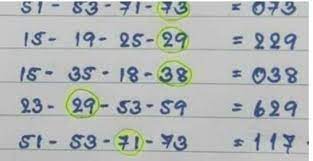 51 - 53 - 71 - 73 = 073
15 - 19 - 25 - 29 = 229
15 - 35 - 18 - 38 = 038
23 - 29 - 53 - 59 = 629
51 - 53 - 71 - 73 = 117